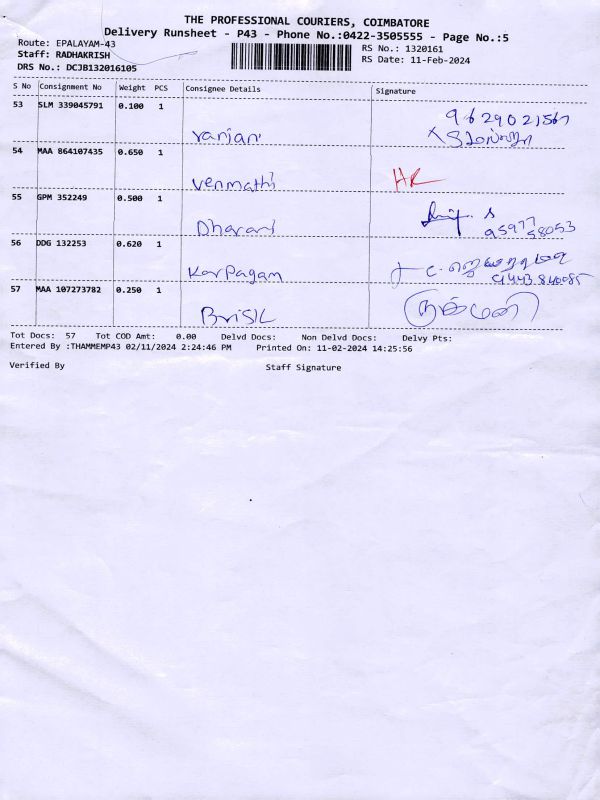 THE PROFESSIONAL COURIERS, COIMBATORE
Delivery Runsheet - P43 - Phone No.:0422-3505555 - Page No.:5
Route: EPALAYAM-43
RS No.: 1320161
Staff: RADHAKRISH
RS Date: 11-Feb-2024
DRS No.: DCJB132016105
S No Consignment No Weight PCS Consignee Details Signature
53 SLM 339045791 0.100 1
9629021567
ranjani
54 MAA 864107435 0.650 1
Venmathi HR
55 GPM 352249 0.500 1
Dharani 95977 58053
56 DDG 132253 0.620 1
Karpagam
57 MAA 107273782 0.250 1
Brisk ருக்மணி
Tot Docs: 57 Tot COD Amt: 0.00 Delvd Docs: Non Delvd Docs: Delvy Pts:
Entered By :THAMMEMP43 02/11/2024 2:24:46 PM Printed On: 11-02-2024 14:25:56
Verified By Staff Signature